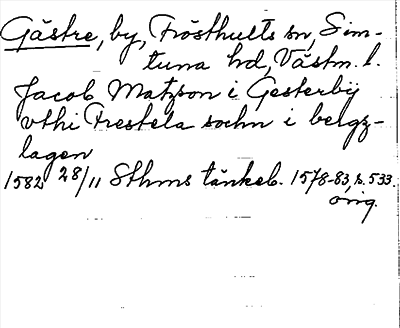 Gästre, by, Frösthults sn, Sim-
tuna hd, Västm. l.
Jacob Matzson i Gesterbÿ
vthi Frestela sochn i bergz-
lagen
1582 28/11 Sthms tänkeb. 1578-83, s. 533.
orig.